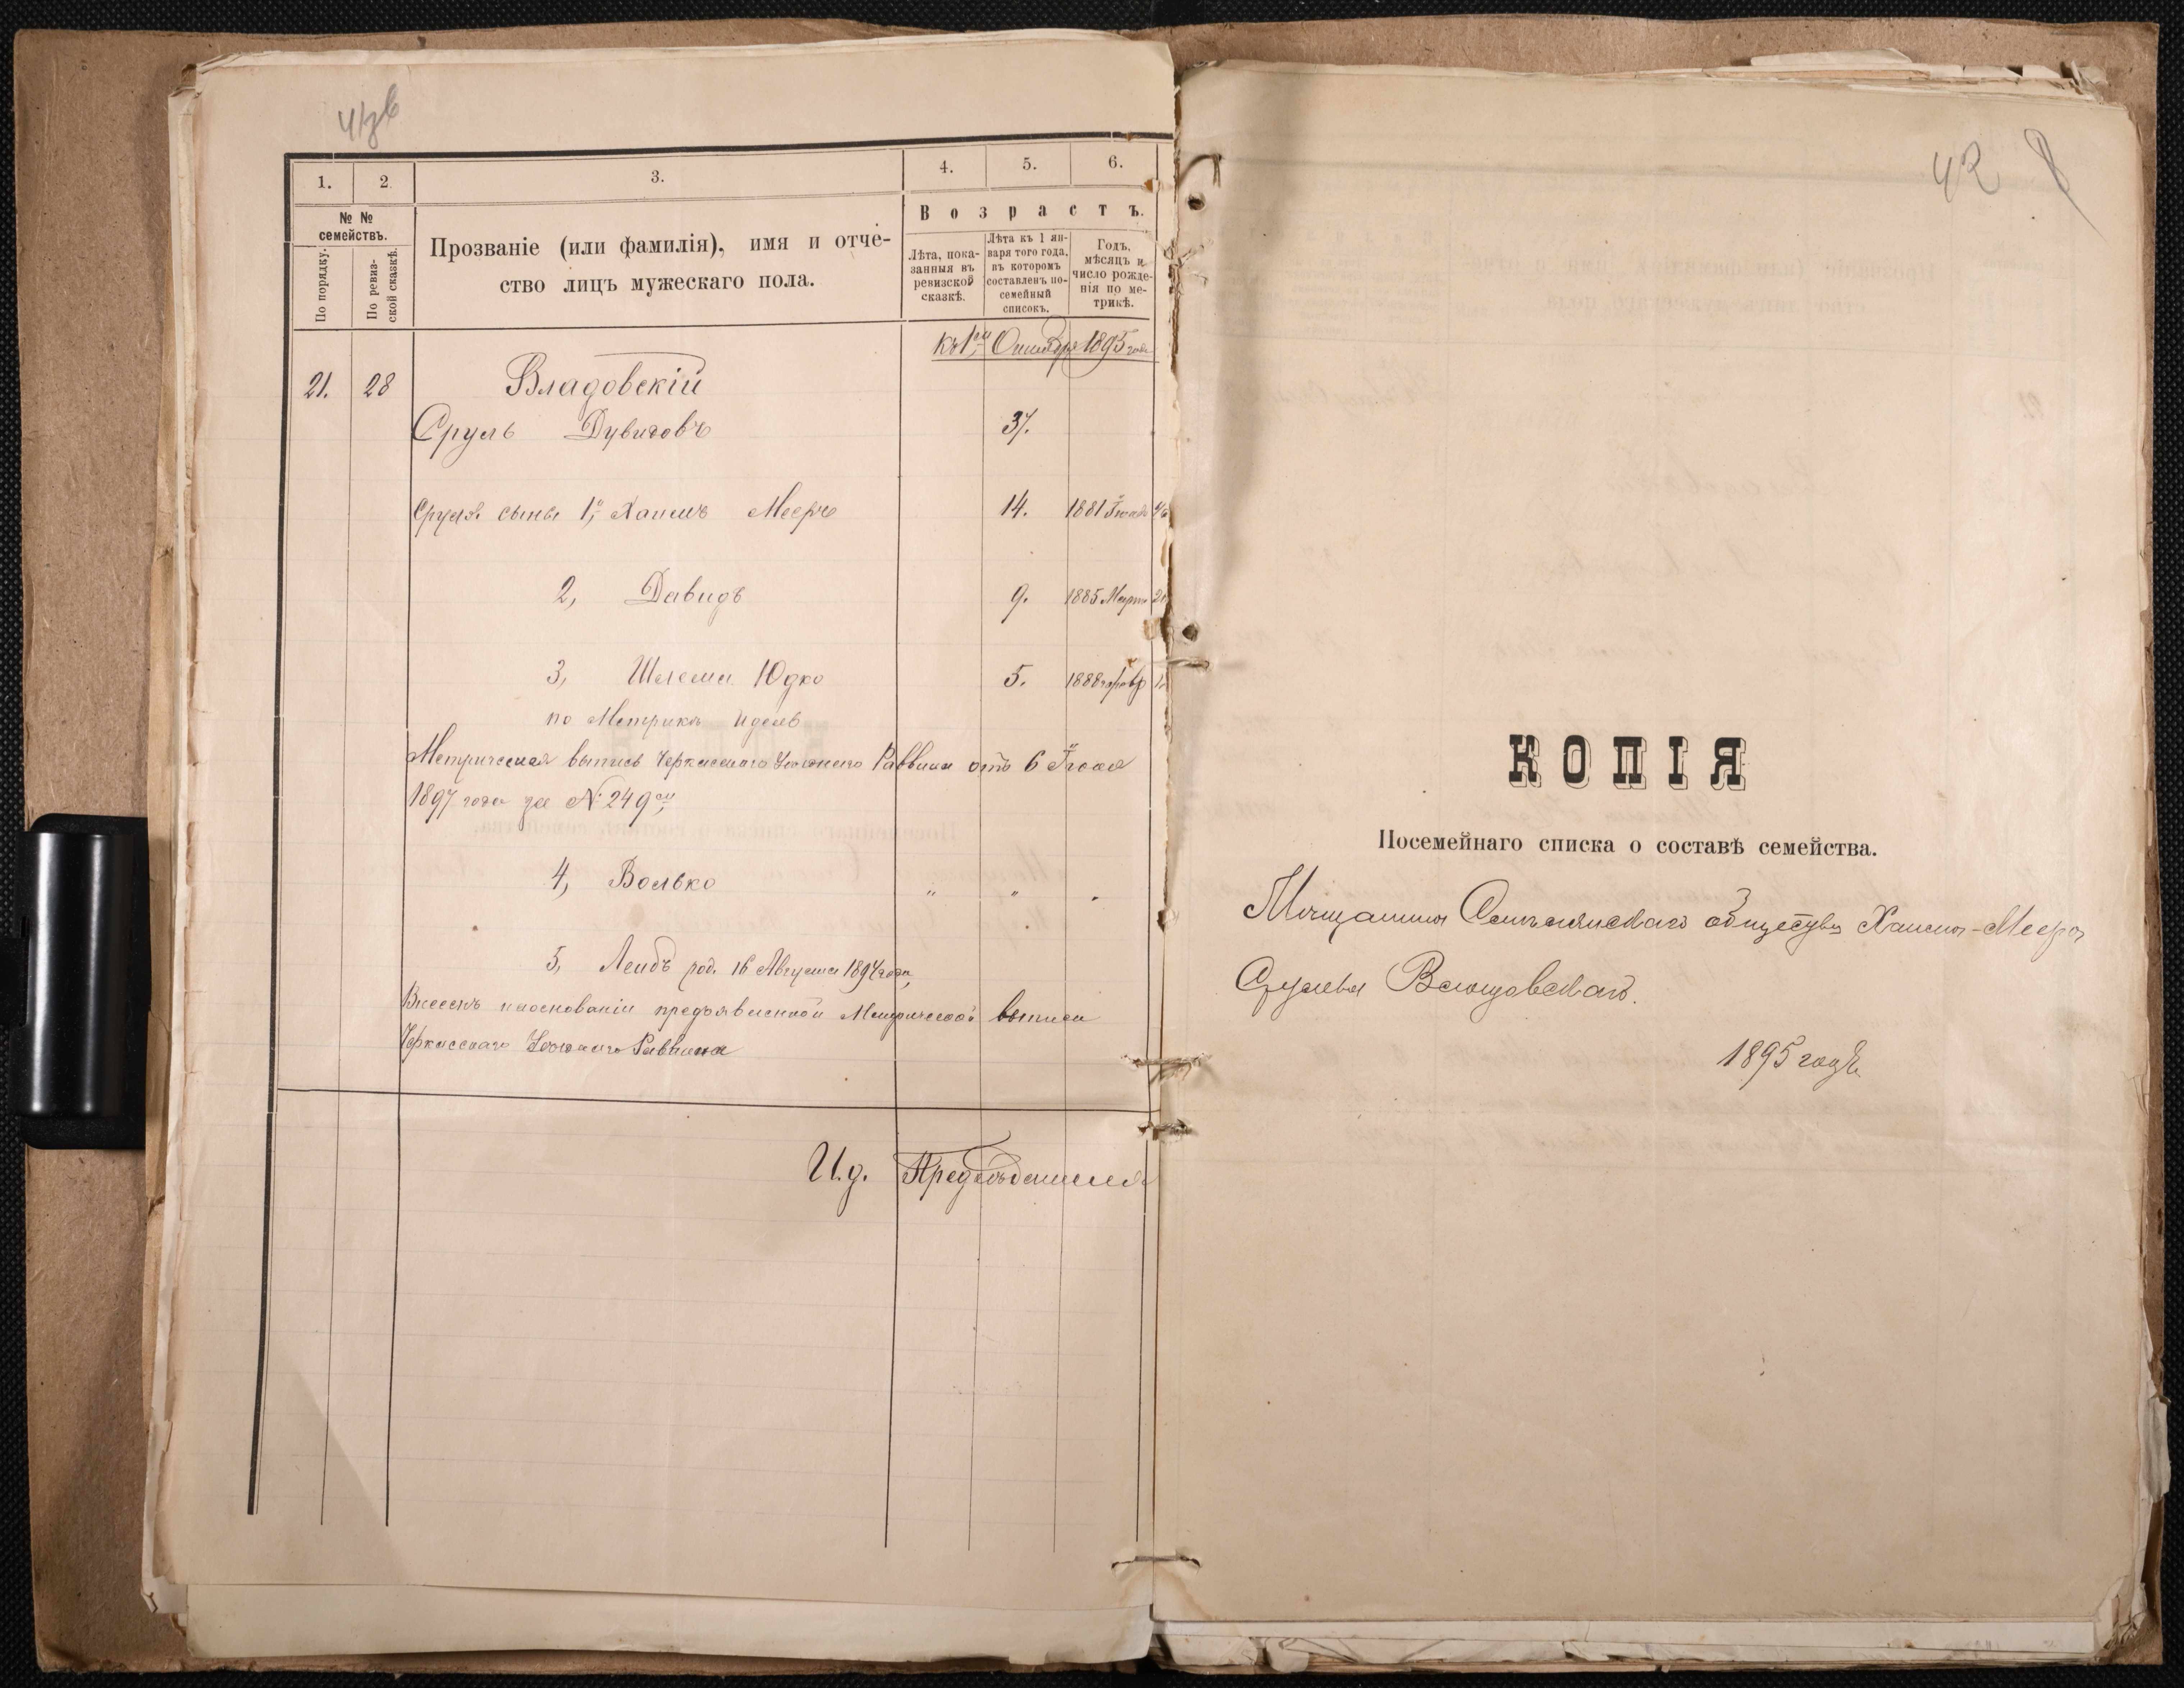 1.
2.
3.
4.
5.
6.
№ №
семействъ.
По порядку.
По ревиз-
ской сказкѣ.
Прозваніе (или фамилія), имя и отче-
ство лицъ мужескаго пола.
Возрастъ.
Лѣта, пока-
занныя въ
ревизской
сказкѣ.
Лѣта къ 1 ян-
варя того года,
въ которомъ
составленъ по-
семейный
списокъ.
Годъ,
мѣсяцъ и
число рожде-
нія по ме-
трикѣ.
1895 года
21. 28 Владовскій
Сруль Дувидовъ 37.
Сруля сыны 1, Хаимъ Мееръ 14. 1881
2, Давидъ 9. 1885 Марта
3, Шлема Юдко 5. 1888
по Метрикѣ Идель
Метрическая выпись Черкасскаго Уѣзднаго Раввина отъ 6
1897 года за № 249
4, Волько " "
5, Лейбъ род. 16 Августа 1894 года,
Внесенъ на основаніи предъявленной Метрической выписи
Черкасскаго Уѣзднаго Раввина
И.д. Предсѣдателя
42
КОПІЯ
Посемейнаго списка о составѣ семейства.
Мѣщанина общества Хаима-Меера
Срулева
1895 года